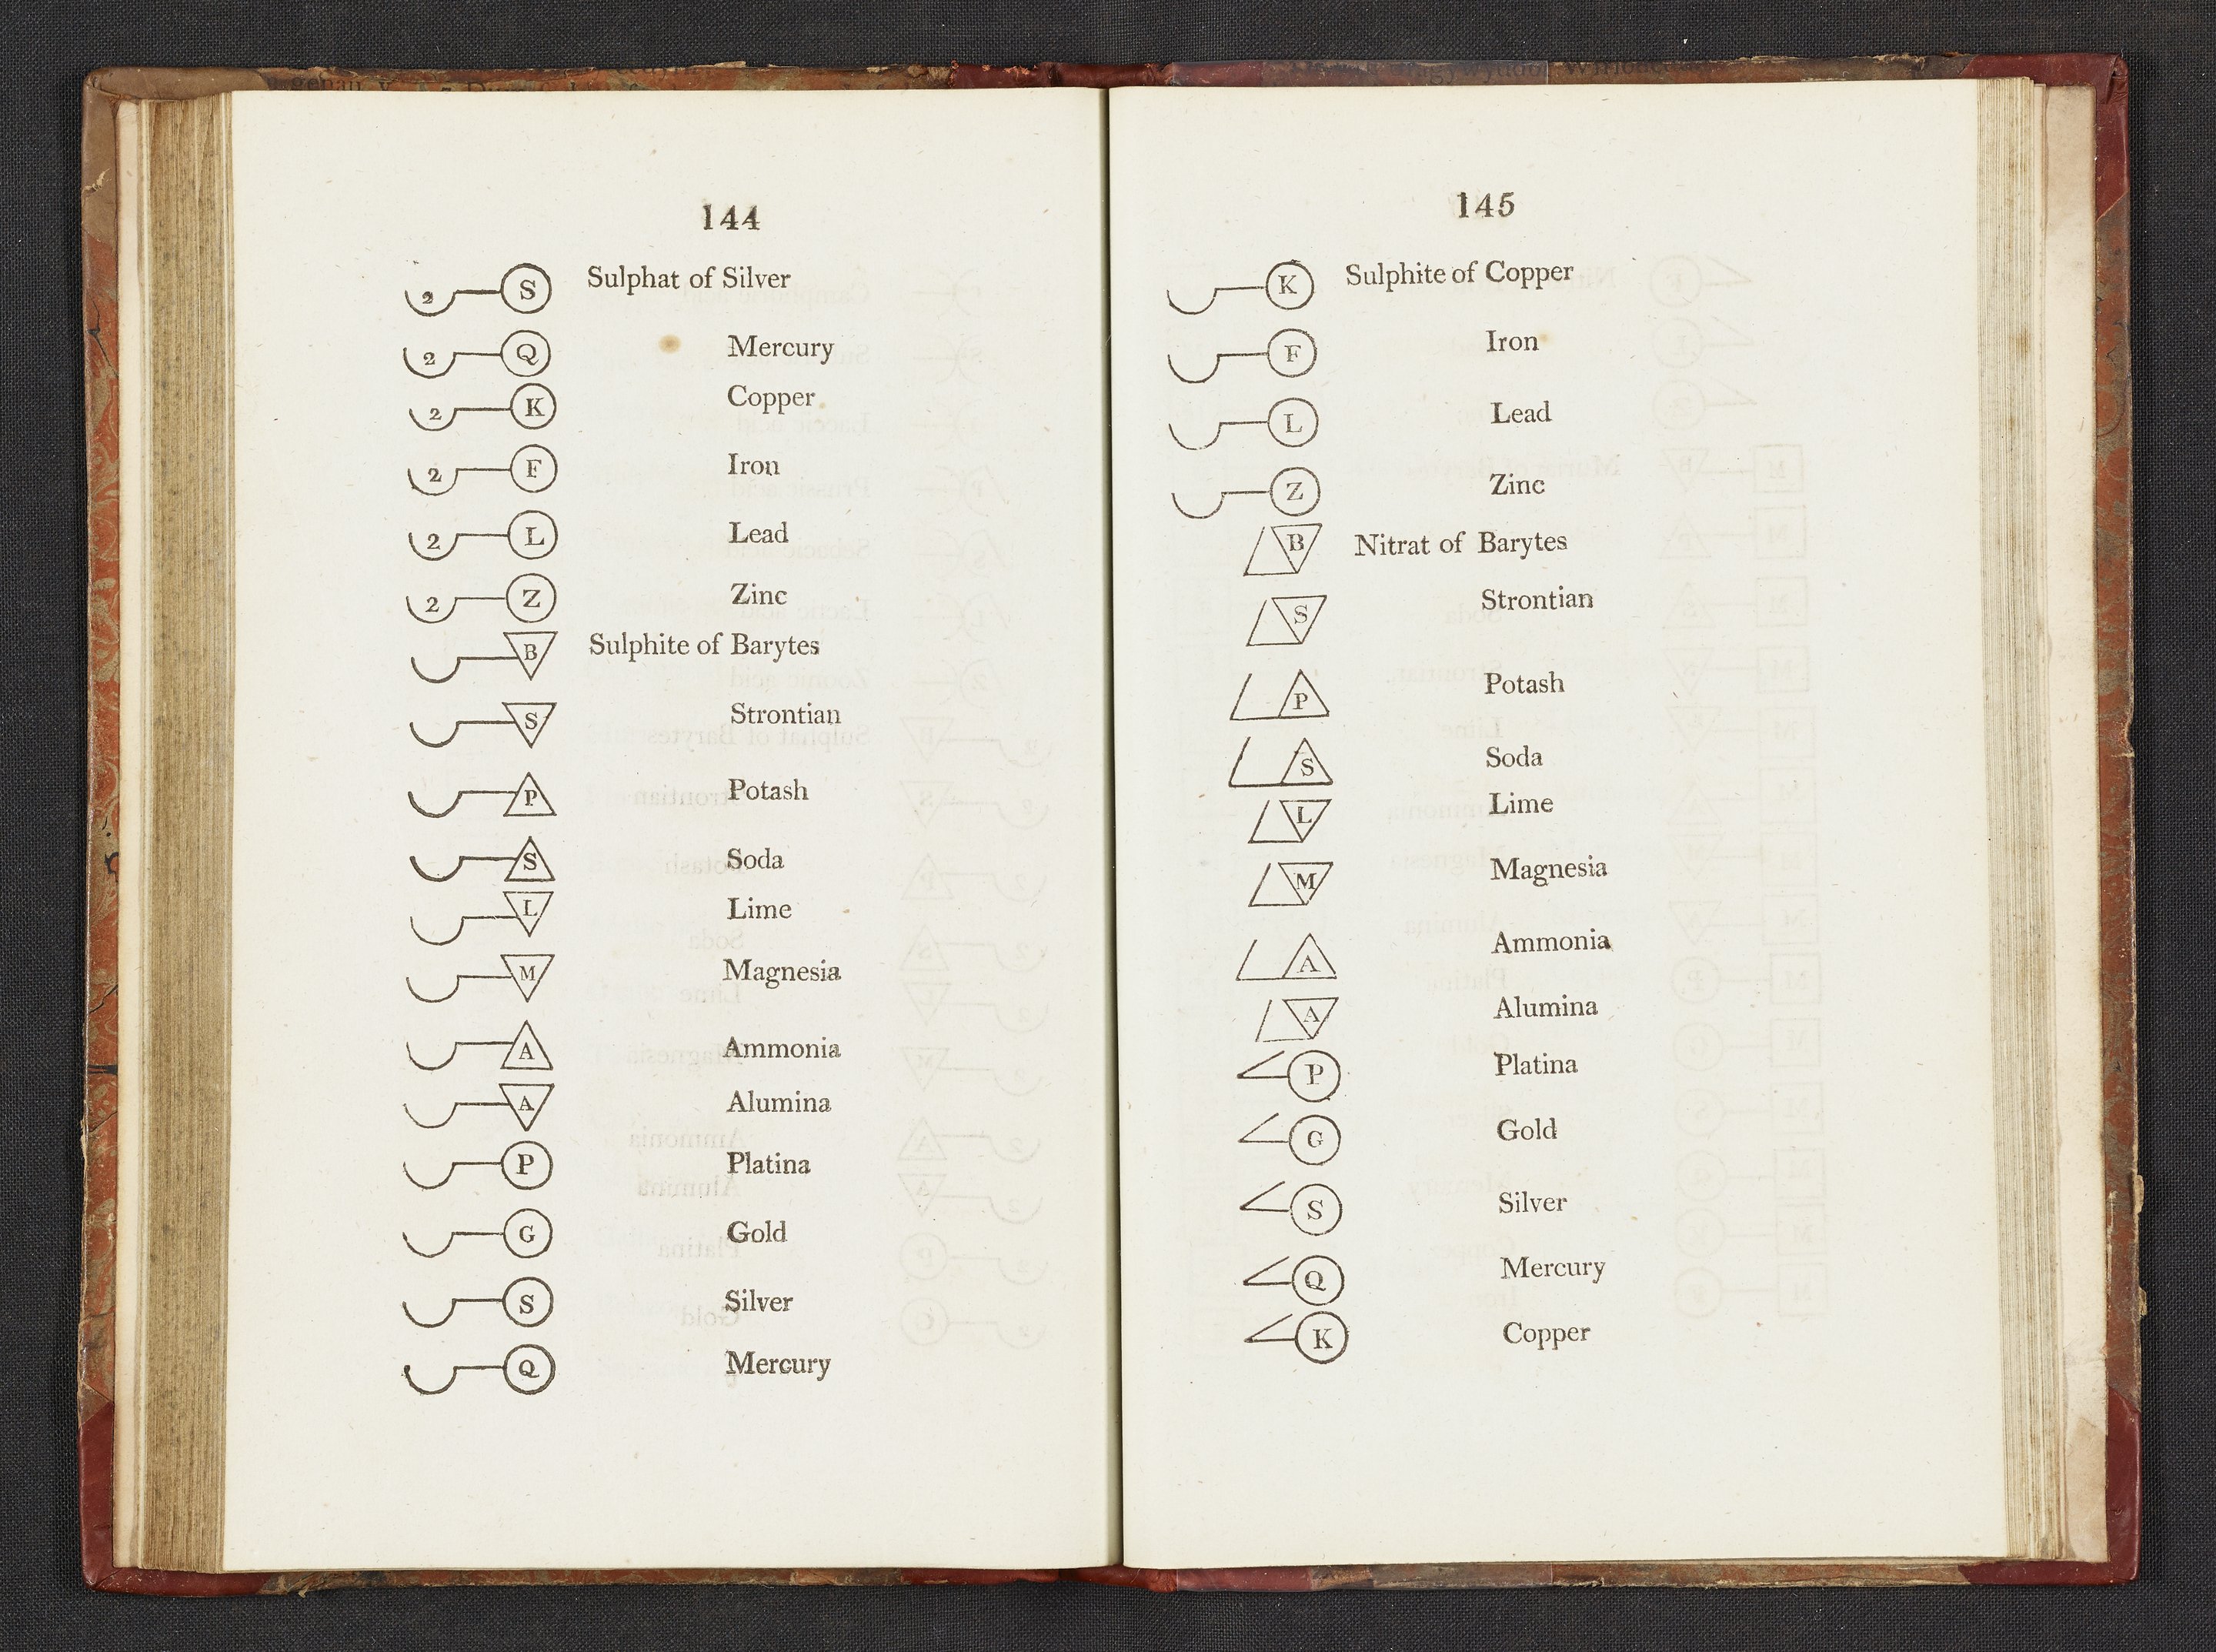 144
2 S Sulphat of Silver
2 Q Mercury
2 K Copper
2 F Iron
2 L Lead
2 Z Zinc
B Sulphite of Barytes
S Strontian
P Potash
S Soda
L Lime
M Magnesia
A Ammonia
A Alumina
P Platina
G Gold
S Silver
Q Mercury
145
K Sulphite of Copper
F Iron
L Lead
Z Zinc
B Nitrat of Barytes
S Strontian
P Potash
S Soda
L Lime
M Magnesia
A Ammonia
A Alumina
P Platina
G Gold
S Silver
Q Mercury
K Copper